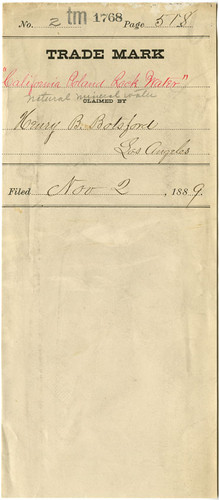 No. 2 tm 1768 Page 518
TRADE MARK
"California Poland Rock Water"
natural mineral water
CLAIMED BY
Henry B. Botsford
Los Angeles
Filed Nov 2, 1889.